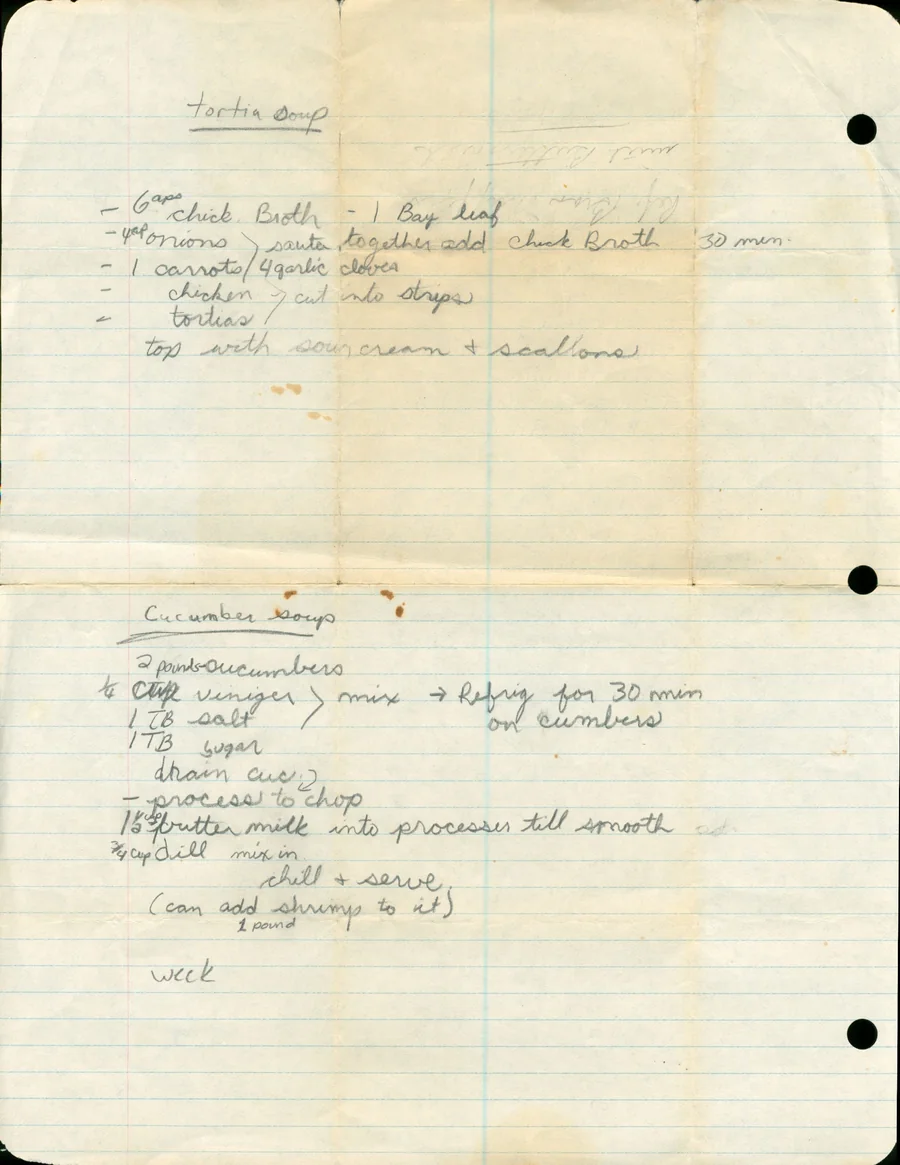 tortia soup
- 6 cups chick. Broth - 1 Bay leaf
- 4 cup onions sauta together add chick Broth 30 min.
- 1 carrots 4 garlic cloves
- chicken cut into strips
- tortias
top with sour cream + scallons
Cucumber soup
2 pounds cucumbers
1/4 cup veniger > mix → Refrig for 30 min
1 TB salt on cumbers
1 TB sugar
drain cuc.
- process to chop
1 1/2 cup butter milk into processer till smooth
3/4 cup dill mix in
chill + serve
(can add shrimp to it)
1 pound
week